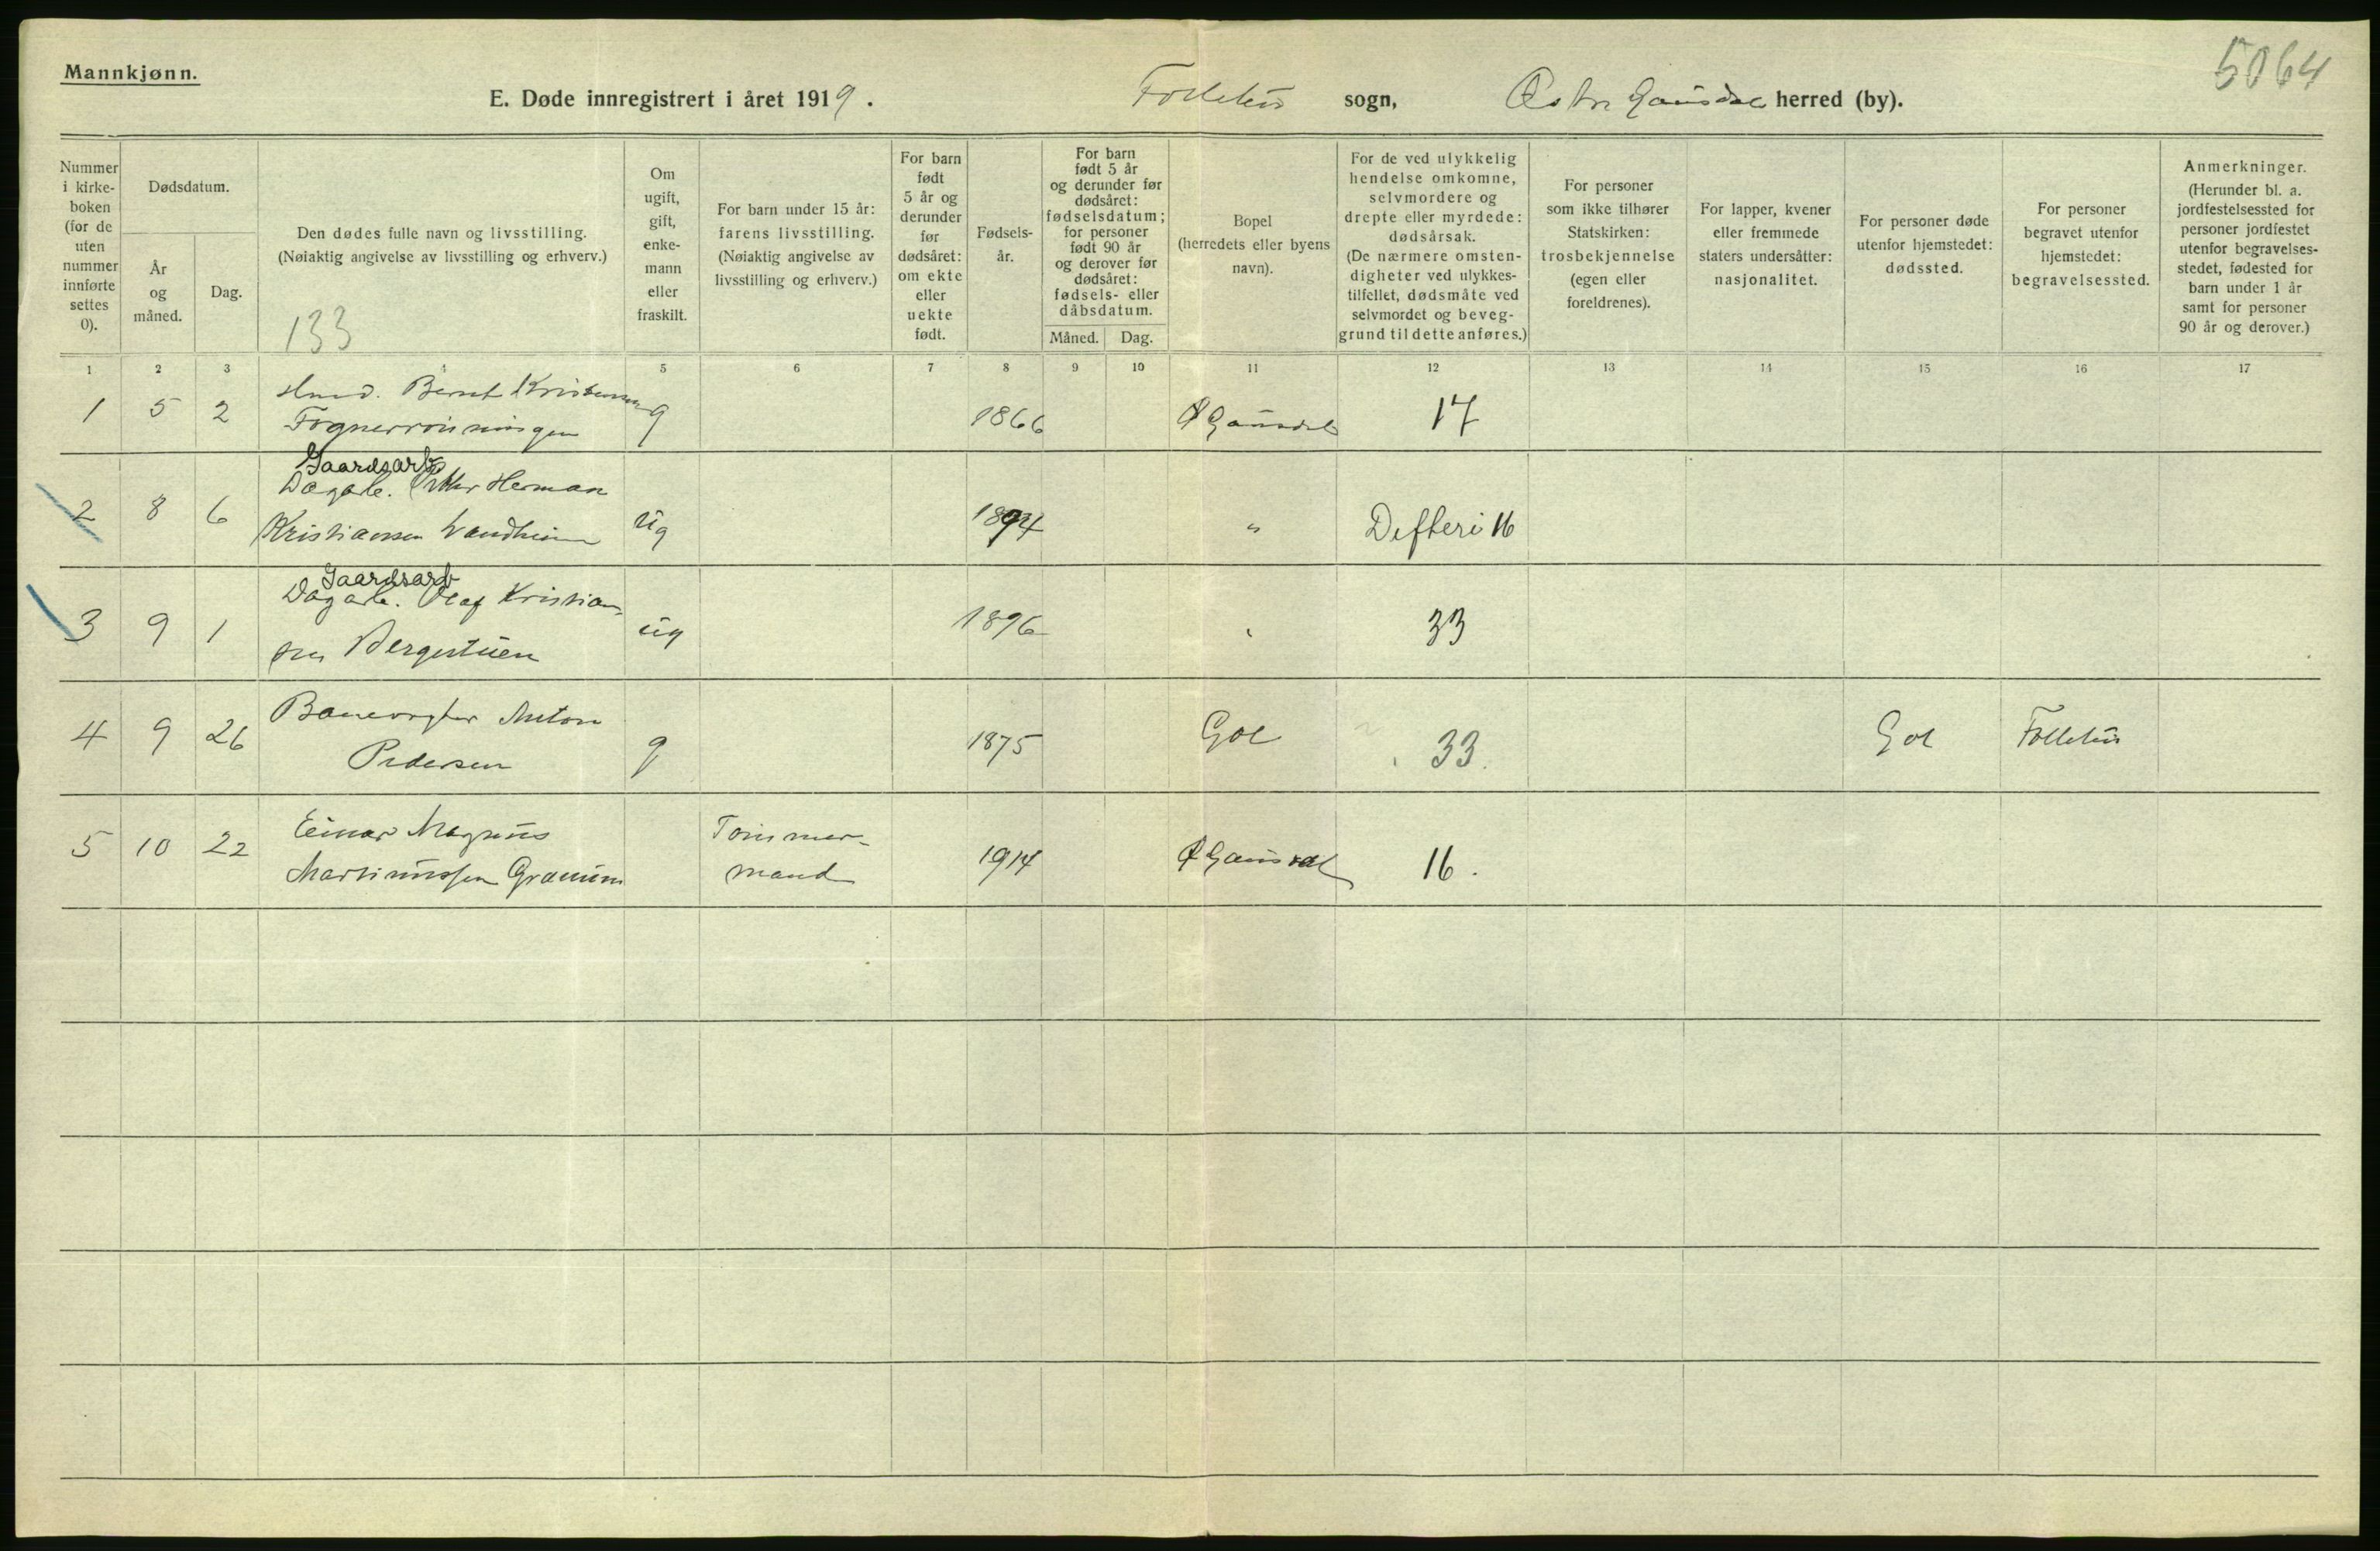 Mannkjønn.
5064
E. Døde innregistrert i året 1919. Follebu sogn, Østre Gausdal herred (by).
Nummer i kirke-boken (for de uten nummer innførte settes 0).
Dødsdatum.
År og måned.
Dag.
Den dødes fulle navn og livsstilling.
(Nøiaktig angivelse av livsstilling og erhverv.)
133
Om ugift, gift, enke-mann eller fraskilt.
For barn under 15 år: farens livsstilling.
(Nøiaktig angivelse av livsstilling og erhverv.)
For barn født 5 år og derunder før dødsåret: om ekte eller uekte født.
Fødsels-år.
For barn født 5 år og derunder før dødsåret: fødselsdatum; for personer født 90 år og derover før dødsåret: fødsels- eller dåbsdatum.
Måned.
Dag.
Bopel
(herredets eller byens navn).
For de ved ulykkelig hendelse omkomne, selvmordere og drepte eller myrdede: dødsårsak.
(De nærmere omsten-digheter ved ulykkes-tilfellet, dødsmåte ved selvmordet og beveg-grund til dette anføres.)
For personer som ikke tilhører Statskirken: trosbekjennelse (egen eller foreldrenes).
For lapper, kvener eller fremmede staters undersåtter: nasjonalitet.
For personer døde utenfor hjemstedet: dødssted.
For personer begravet utenfor hjemstedet: begravelsessted.
Anmerkninger.
(Herunder bl. a. jordfestelsessted for personer jordfestet utenfor begravelses-stedet, fødested for barn under 1 år samt for personer 90 år og derover.)
1 2 3 4 5 6 7 8 9 10 11 12 13 14 15 16 17
1 5 2 Bernt Kristensen g 1866 Ø Gausdal 17
Gaardsarb
2 8 6 Dagarb. Petter Herman
Kristiansen Landheim ug 1894 " Difteri 16
Gaardsarb
3 9 1 Dagarb. Olaf Kristian-
sen Bergestuen ug 1896 " 33
4 9 26 Banevogter Anton
Pedersen g 1875 Gol 33. Gol Follebu
5 10 22 Einar Magnus Tømmer-
Martinussen Granum mand 1914 Ø Gausdal 16.